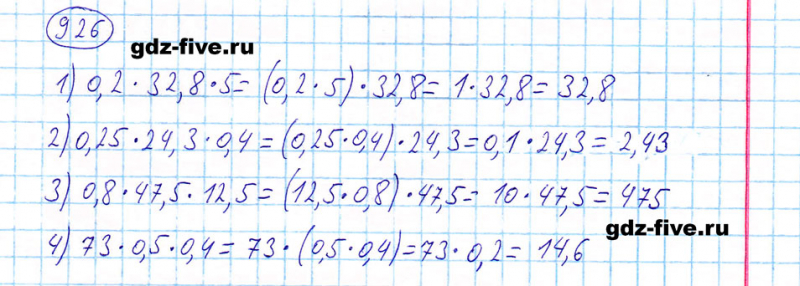 926
gdz-five.ru
1) 0,2 · 32,8 · 5 = (0,2 · 5) · 32,8 = 1 · 32,8 = 32,8
2) 0,25 · 24,3 · 0,4 = (0,25 · 0,4) · 24,3 = 0,1 · 24,3 = 2,43
3) 0,8 · 47,5 · 12,5 = (12,5 · 0,8) · 47,5 = 10 · 47,5 = 475
gdz-five.ru
4) 73 · 0,5 · 0,4 = 73 · (0,5 · 0,4) = 73 · 0,2 = 14,6